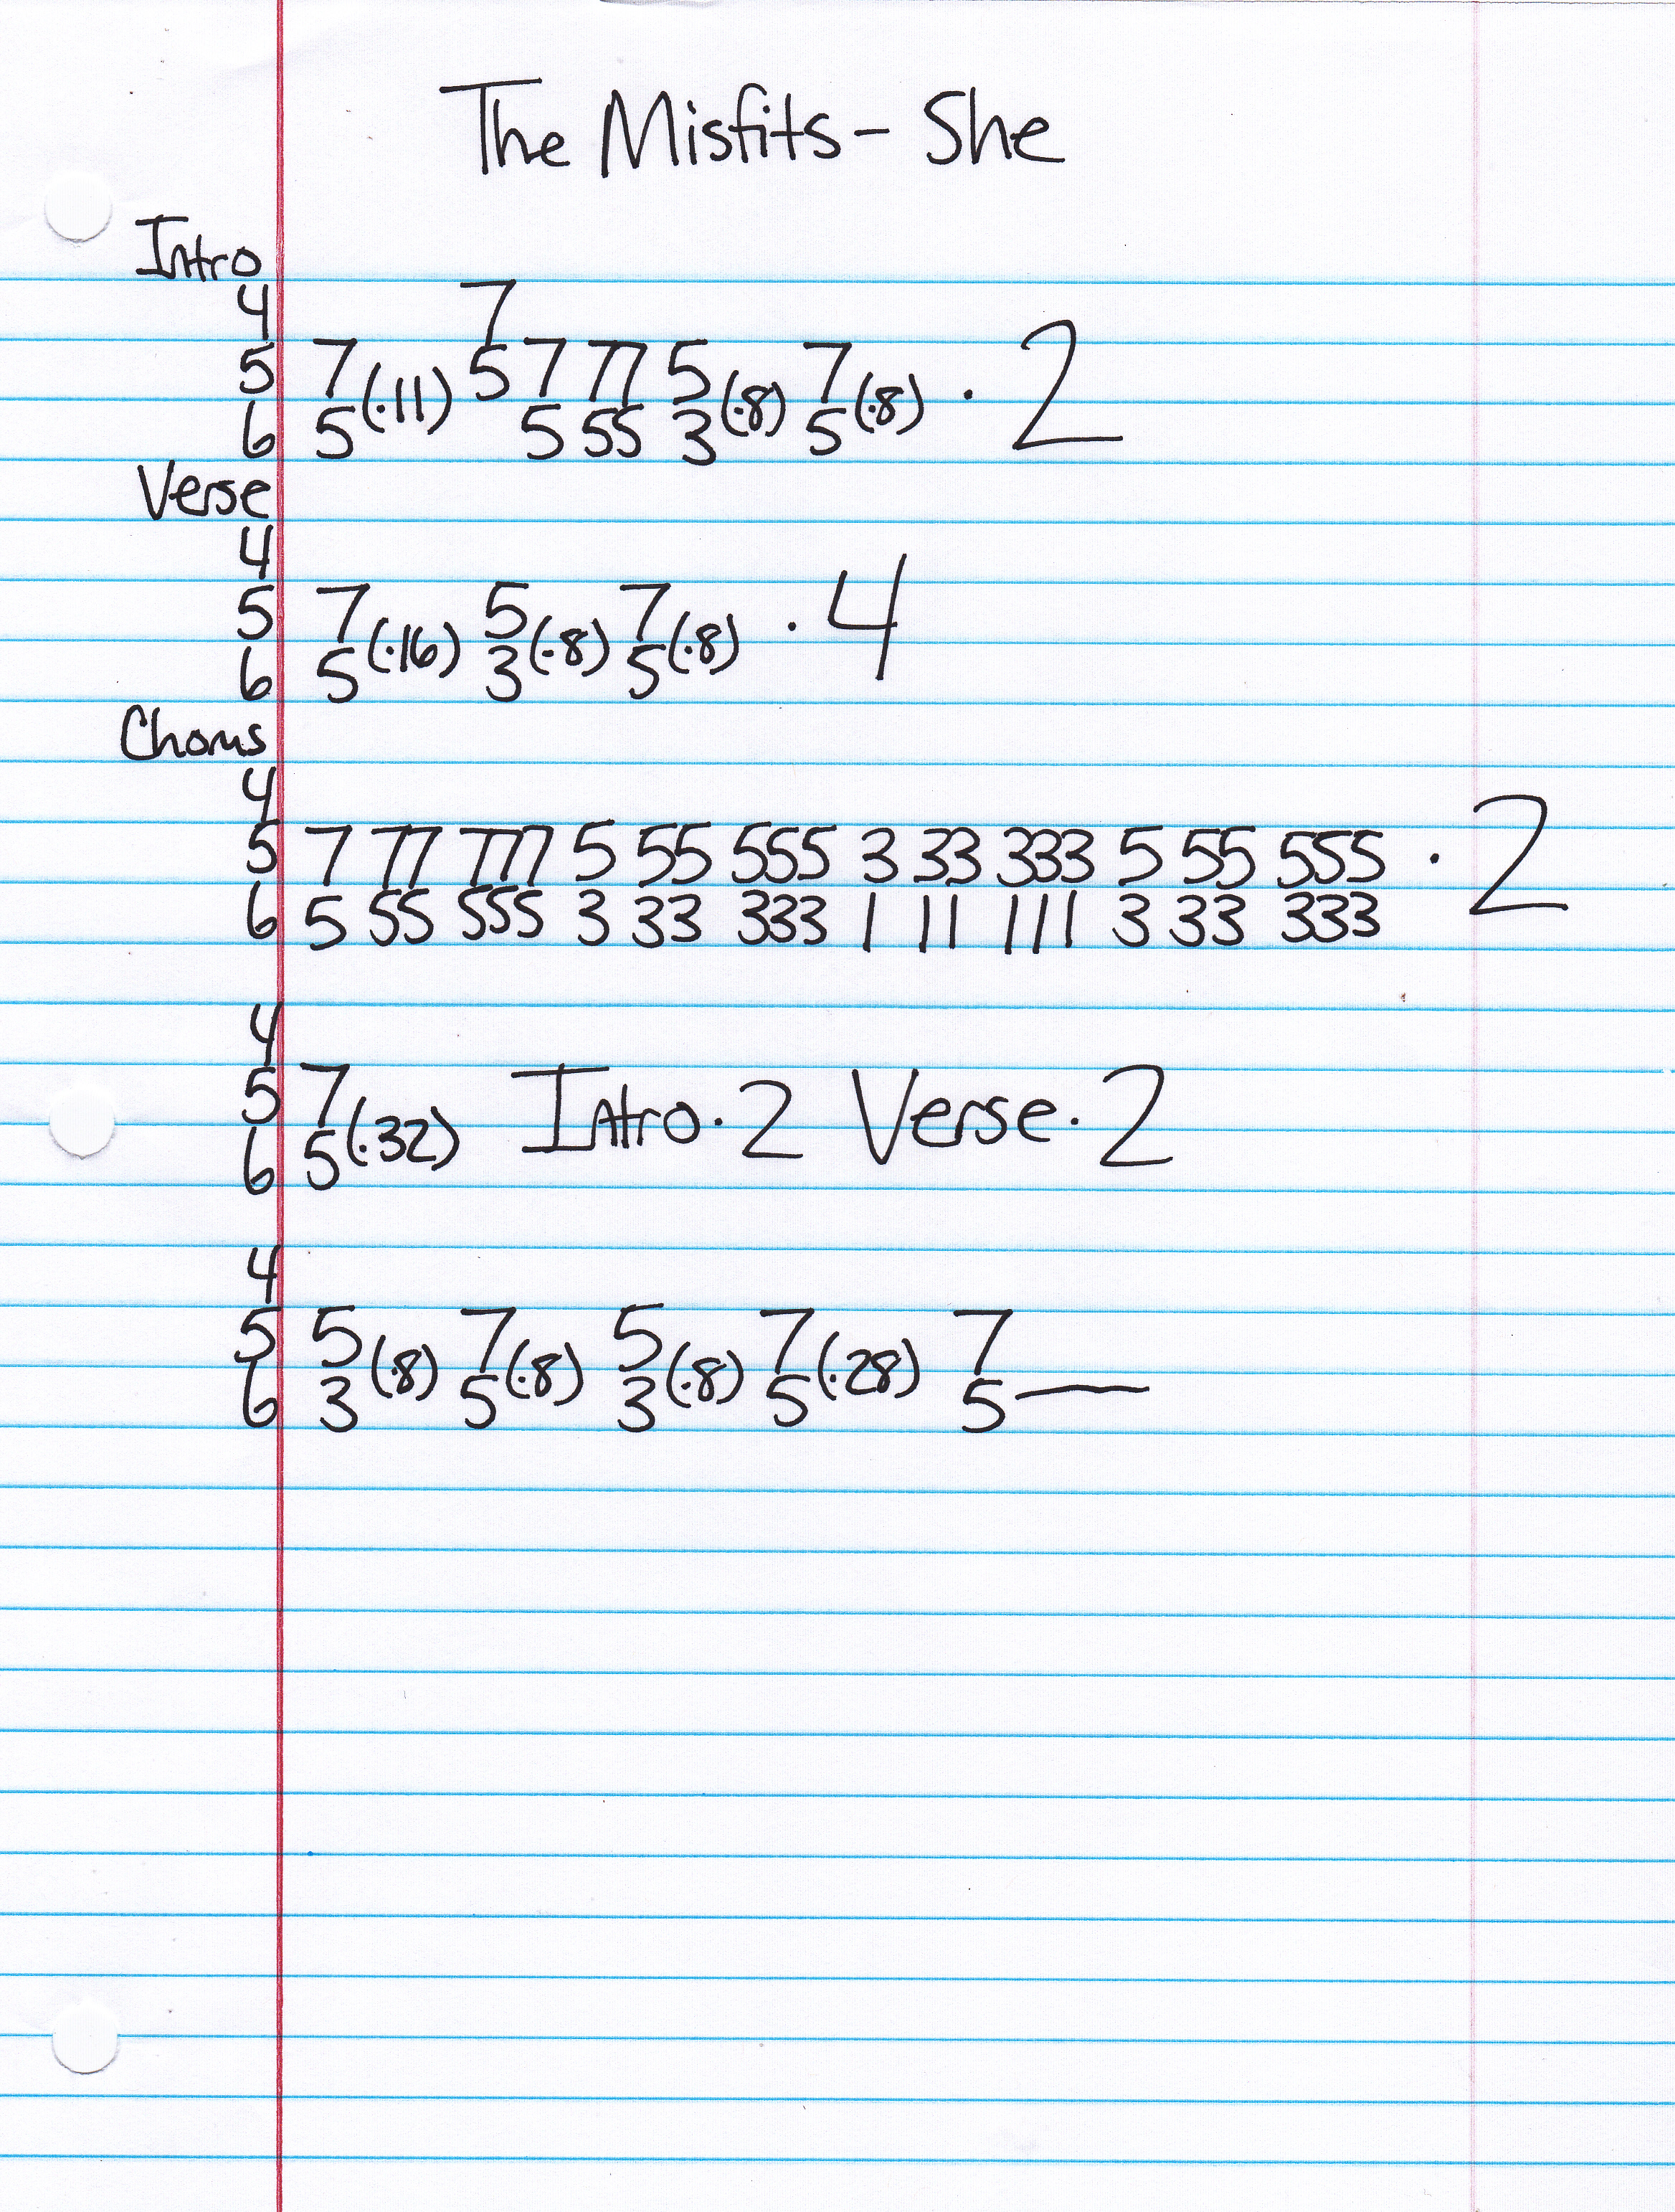 The Misfits - She
Intro
4 7
5 7 5 7 77 5 7
6 5 (·11) 5 55 3 (·8) 5 (·8) · 2
Verse
4
5 7 5 7
6 5 (·16) 3 (·8) 5 (·8) · 4
Chorus
4
5 7 77 777 5 55 555 3 33 333 5 55 555 · 2
6 5 55 555 3 33 333 1 11 111 3 33 333
4
5 7
6 5 (·32) Intro · 2 Verse · 2
4
5 5 7 5 7 7
6 3 (·8) 5 (·8) 3 (·8) 5 (·28) 5 —